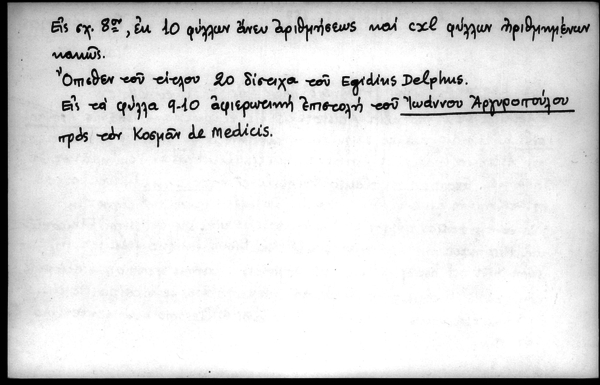 Εἰς σχ. 8ον, ἐκ 10 φύλλων ἄνευ ἀριθμήσεως καί cxl φύλλων ἠριθμημένων
κακῶς.
Ὄπισθεν τοῦ τίτλου 20 δίστιχα τοῦ Egidius Delphus.
Εἰς τά φύλλα 9-10 ἀφιερωτική ἐπιστολή τοῦ Ἰωάννου Ἀργυροπούλου
πρός τόν Κοσμᾶν de Medicis.